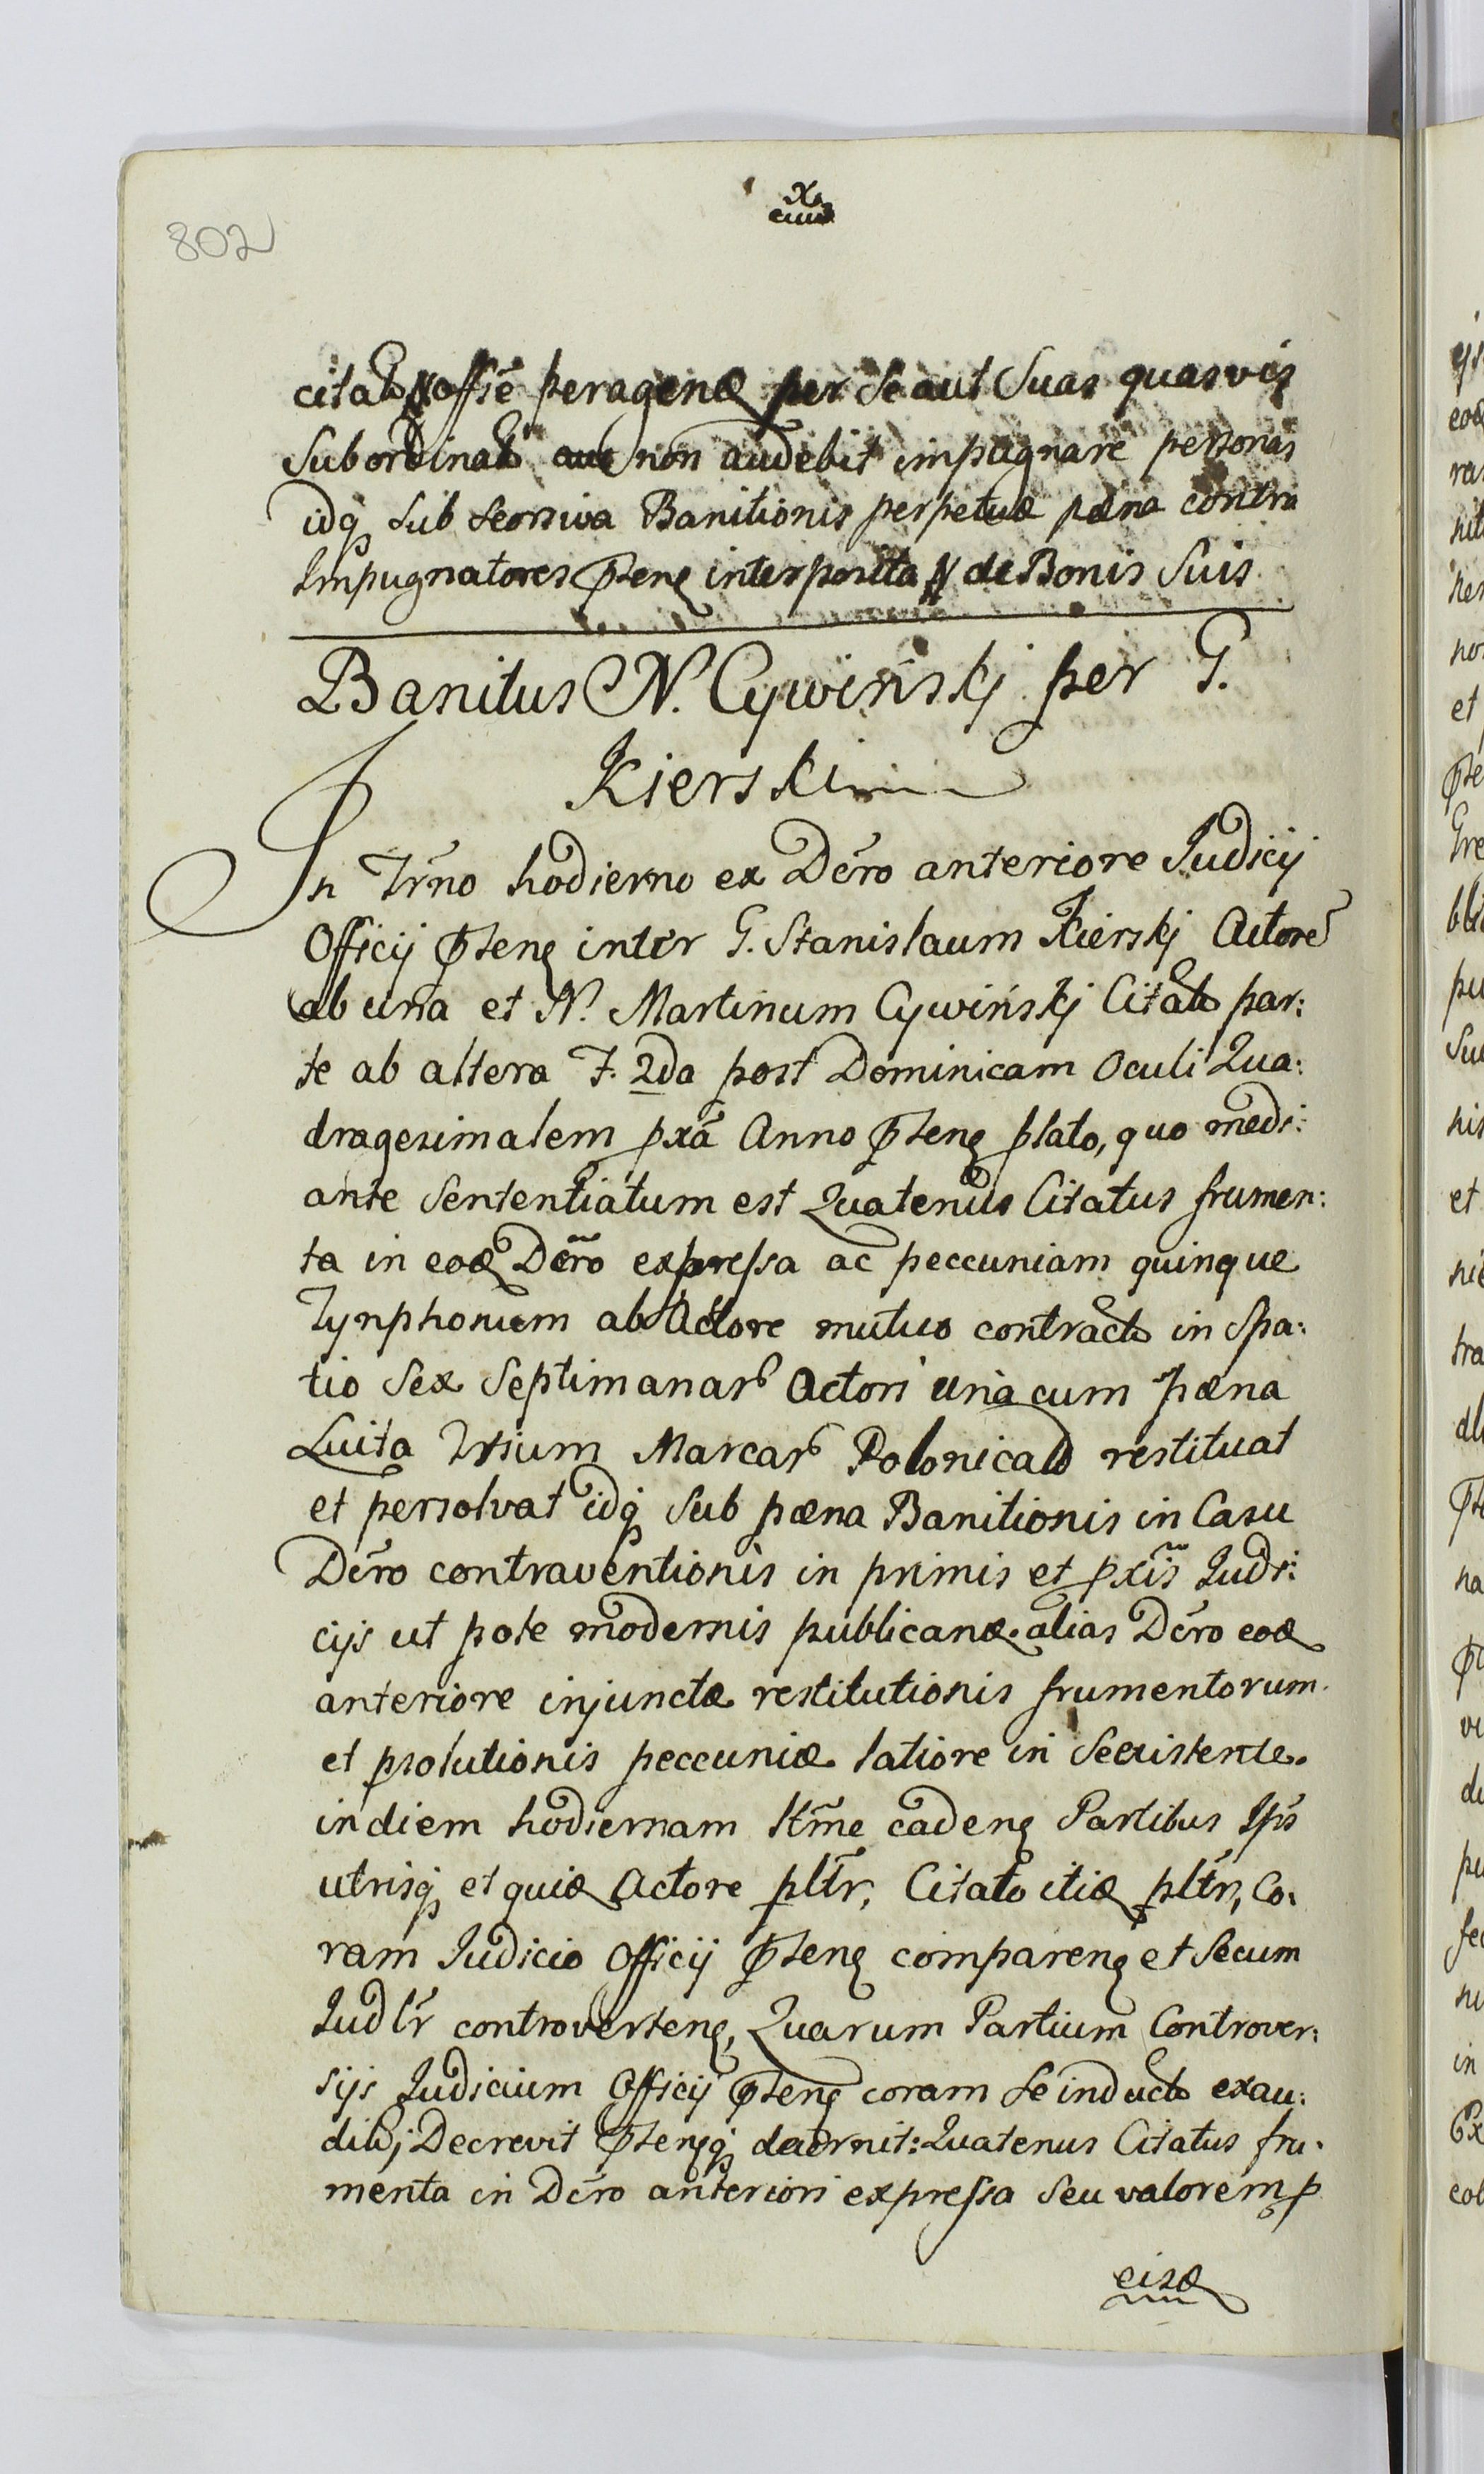 802
citato N offse peragenæ per se aut Suas quasvis
Subordinato non audebit impugnare personas
idq sub seorsiva Banitionis perpetuæ pæna contra
Impugnatores pteng interposita N de Bonis Suis
Banitus N. Cywiński per G.
Kierski
In Trno hodierno ex Dcro anteriore Judicij
Officij pteng inter G. Stanislaum Kierskj Actore
ab una et N. Martinum Cywińskj Citato par:
te ab altera F. 2da post Dominicam Oculi Qua:
dragesimalem pxã Anno pteng plato, quo medi:
ante Sententiatum est Quatenus Citatus frumen:
ta in eoæ Dcro expressa ac peccuniam quinque
Tynphonum ab Actore mutuo contracto in spa:
tio Sex Septimanar Actori una cum pæna
Luita Trium Marcar Polonical restituat
et persolvat idq sub pæna Banitionis in Casu
Dcro contraventionis in primis et pxis Judi:
cijs ut pote modernis publicanæ. alias Dcro eoæ
anteriore injunctæ restitutionis frumentorum
et psolutionis peccuniæ latiore in Se existente.
in diem hodiernam ltme cadeng Partibus Ips
utrisq et quiæ Actore pltr, Citato itiæ pltr, Co:
ram Judicio Officij pteng compareng et Secum
Judlr controverteng, Quarum Partium Controver:
sijs Judicium Officij pteng coram Se inducto exau:
ditj Decrevit ptengq decernit: Quatenus Citatus fru:
menta in Dcro anteriori expressa Seu valorem p
eisæ